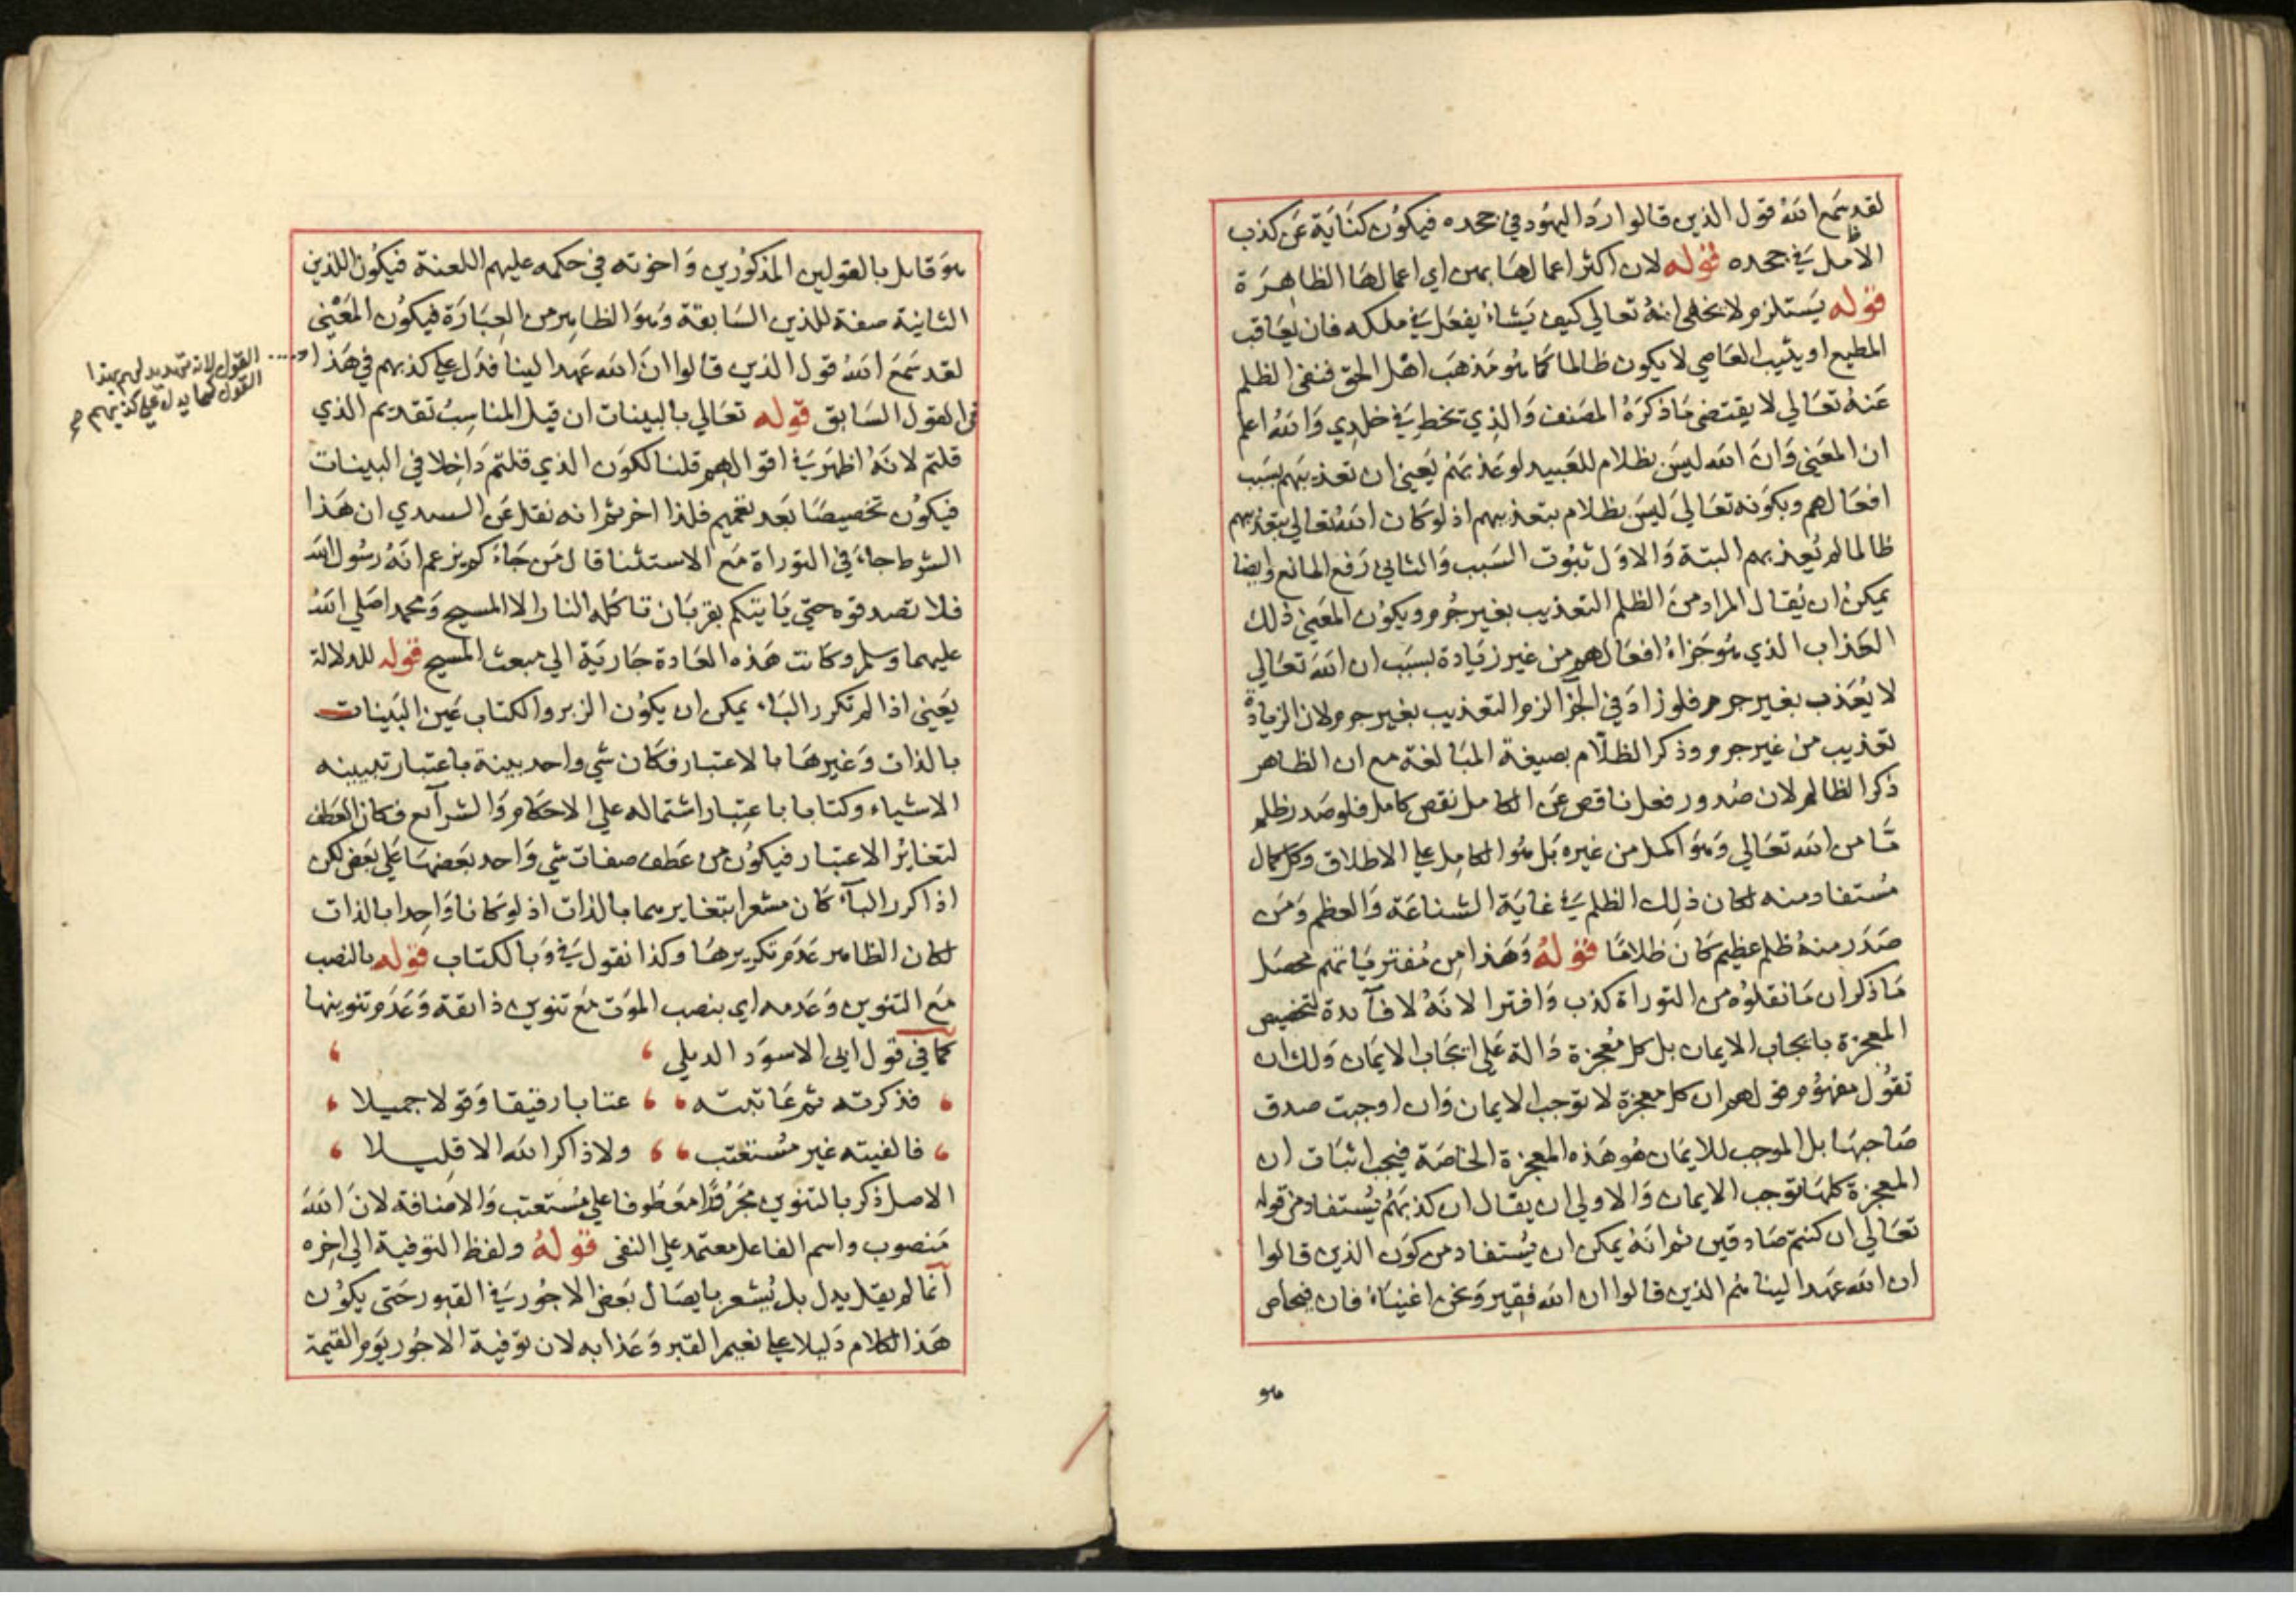 لقد سمع الله قول الذين قالوا رد اليهود في جحده فيكون كناية عن كذب
الأمل في جحده قوله لان اكثر اعمالها بهن اي اعمالها الظاهرة
قوله يستلزم ولا يخفى انه تعالى كيف يشاء يفعل في ملكه فان يعاقب
المطيع او يثيب العاصي لا يكون ظالما كما هو مذهب اهل الحق فنفى الظلم
عنه تعالي لا يقتضي ما ذكره المصنف والذي تخطر في خلدي والله اعلم
ان المعنى وان الله ليس بظلام للعبيد لو عذبهم يعني ان تعذيبهم بسبب
افعالهم وبكونه تعالى ليس بظلام بتعذيبهم اذ لو كان الله تعالي بتعذيبهم
ظالما لم يعذبهم البتة والاول ثبوت السبب والثاني رفع المانع وايضا
يمكن ان يقال المراد من الظلم التعذيب بغير جرم ويكون المعنى ذلك
العذاب الذي هو جزاء افعالهم من غير زيادة بسبب ان الله تعالي
لا يعذب بغير جرم فلو زاد في الجزا لزم التعذيب بغير جرم لان الزيادة
تعذيب من غير جرم وذكر الظلام بصيغة المبالغة مع ان الظاهر
ذكر الظالم لان صدور فعل ناقص عن الكامل نقص كامل فلو صدر ظلم
ما من الله تعالي وهو اكمل من غيره بل هو الكامل علي الاطلاق وكل كمال
مستفاد منه لكان ذلك الظلم في غاية الشناعة والعظم ومن
صدر منه ظلم عظيم كان ظلاما قوله وهذا من مفترياتهم محصل
ما ذكر ان ما نقلوه من التوراة كذب وافترا لانه لا فآئدة لتخصيص
المعجزة بايجاب الايمان بل كل معجزة دالة على ايجاب الايمان ولك ان
تقول مفهوم قولهم ان كل معجزة لا توجب الايمان وان اوجبت صدق
صاحبها بل الموجب للايمان هو هذه المعجزة الخاصة فيجب اثبات ان
المعجزة كلها توجب الايمان والاولي ان يقال ان كذبهم يستفاد من قوله
تعالي ان كنتم صادقين ثم انه يمكن ان يستفاد من كون الذين قالوا
ان الله عهد الينا هم الذين قالوا ان الله فقير ونحن اغنياء فان فنحاص
هو
هو قايل بالقولين المذكورين واخوته في حكمه عليهم اللعنة فيكون اللذين
الثانية صفة للذين السابقة وهو الظاهر من العبارة فيكون المعنى
لقد سمع الله قول الذين قالوا ان الله عهد الينا فدل علي كذبهم في هذا
القول لانه تهديد لهم بهذا
القول كما يدل علي كذبهم صح
في القول السابق قوله تعالي بالبينات ان قيل المناسب تقديم الذي
قلتم لانه اظهر في اقوالهم قلنا لكون الذي قلتم داخلا في البينات
فيكون تخصيصا بعد تعميم فلذا اخر ثم انه نقل عن السدي ان هذا
الشرط جاء في التوراة مع الاستثنا قال من جاءكم يزعم انه رسول الله
فلا تصدقوه حتى ياتيكم بقربان تاكله النار الا المسيح ومحمدا صلي الله
عليهما وسلم وكانت هذه العادة جارية الي مبعث المسيح قوله للدلالة
يعني اذا لم تكرر الباء يمكن ان يكون الزبر والكتاب عين البينات
بالذات وغيرها بالاعتبار فكان شي واحد بينة باعتبار تبيينه
الاشياء وكتابا باعتبار اشتماله علي الاحكام والشرآئع فكان العطف
لتغاير الاعتبار فيكون من عطف صفات شي واحد بعضها علي بعض لكن
اذا كرر البآء كان مشعرا بتغايرهما بالذات اذ لو كانا واحدا بالذات
لكان الظاهر عدم تكريرها وكذا نقول في وبالكتاب قوله بالنصب
مع التنوين وعدمه اي بنصب الموت مع تنوين ذائقة وعدم تنوينها
كما في قول ابي الاسود الديلي
فذكرته ثم عاتبته عتابا رفيقا وقولا جميلا
فالفيته غير مستعتب ولا ذاكر الله الا قليلا
الاصل ذكر بالتنوين مجرورا معطوفا علي مستعتب والاضافة لان الله
منصوب واسم الفاعل معتمد علي النفي قوله ولفظ التوفية الي اخره
انما لم يقل يدل بل يشعر بايصال بعض الاجور في القبور حتى يكون
هذا الكلام دليلا علي نعيم القبر وعذابه لان توفية الاجور يوم القيمة